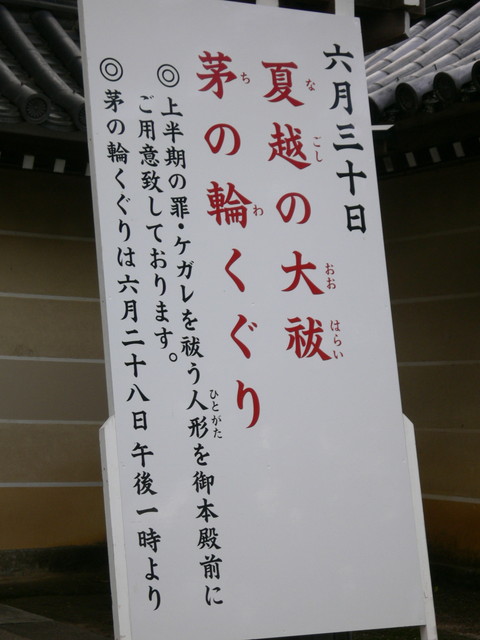 六月三十日
夏越の大祓
なごし おおはらい
茅の輪くぐり
ち わ
◎上半期の罪・ケガレを祓う人形を御本殿前に
ひとがた
ご用意致しております。
◎茅の輪くぐりは六月二十八日午後一時より